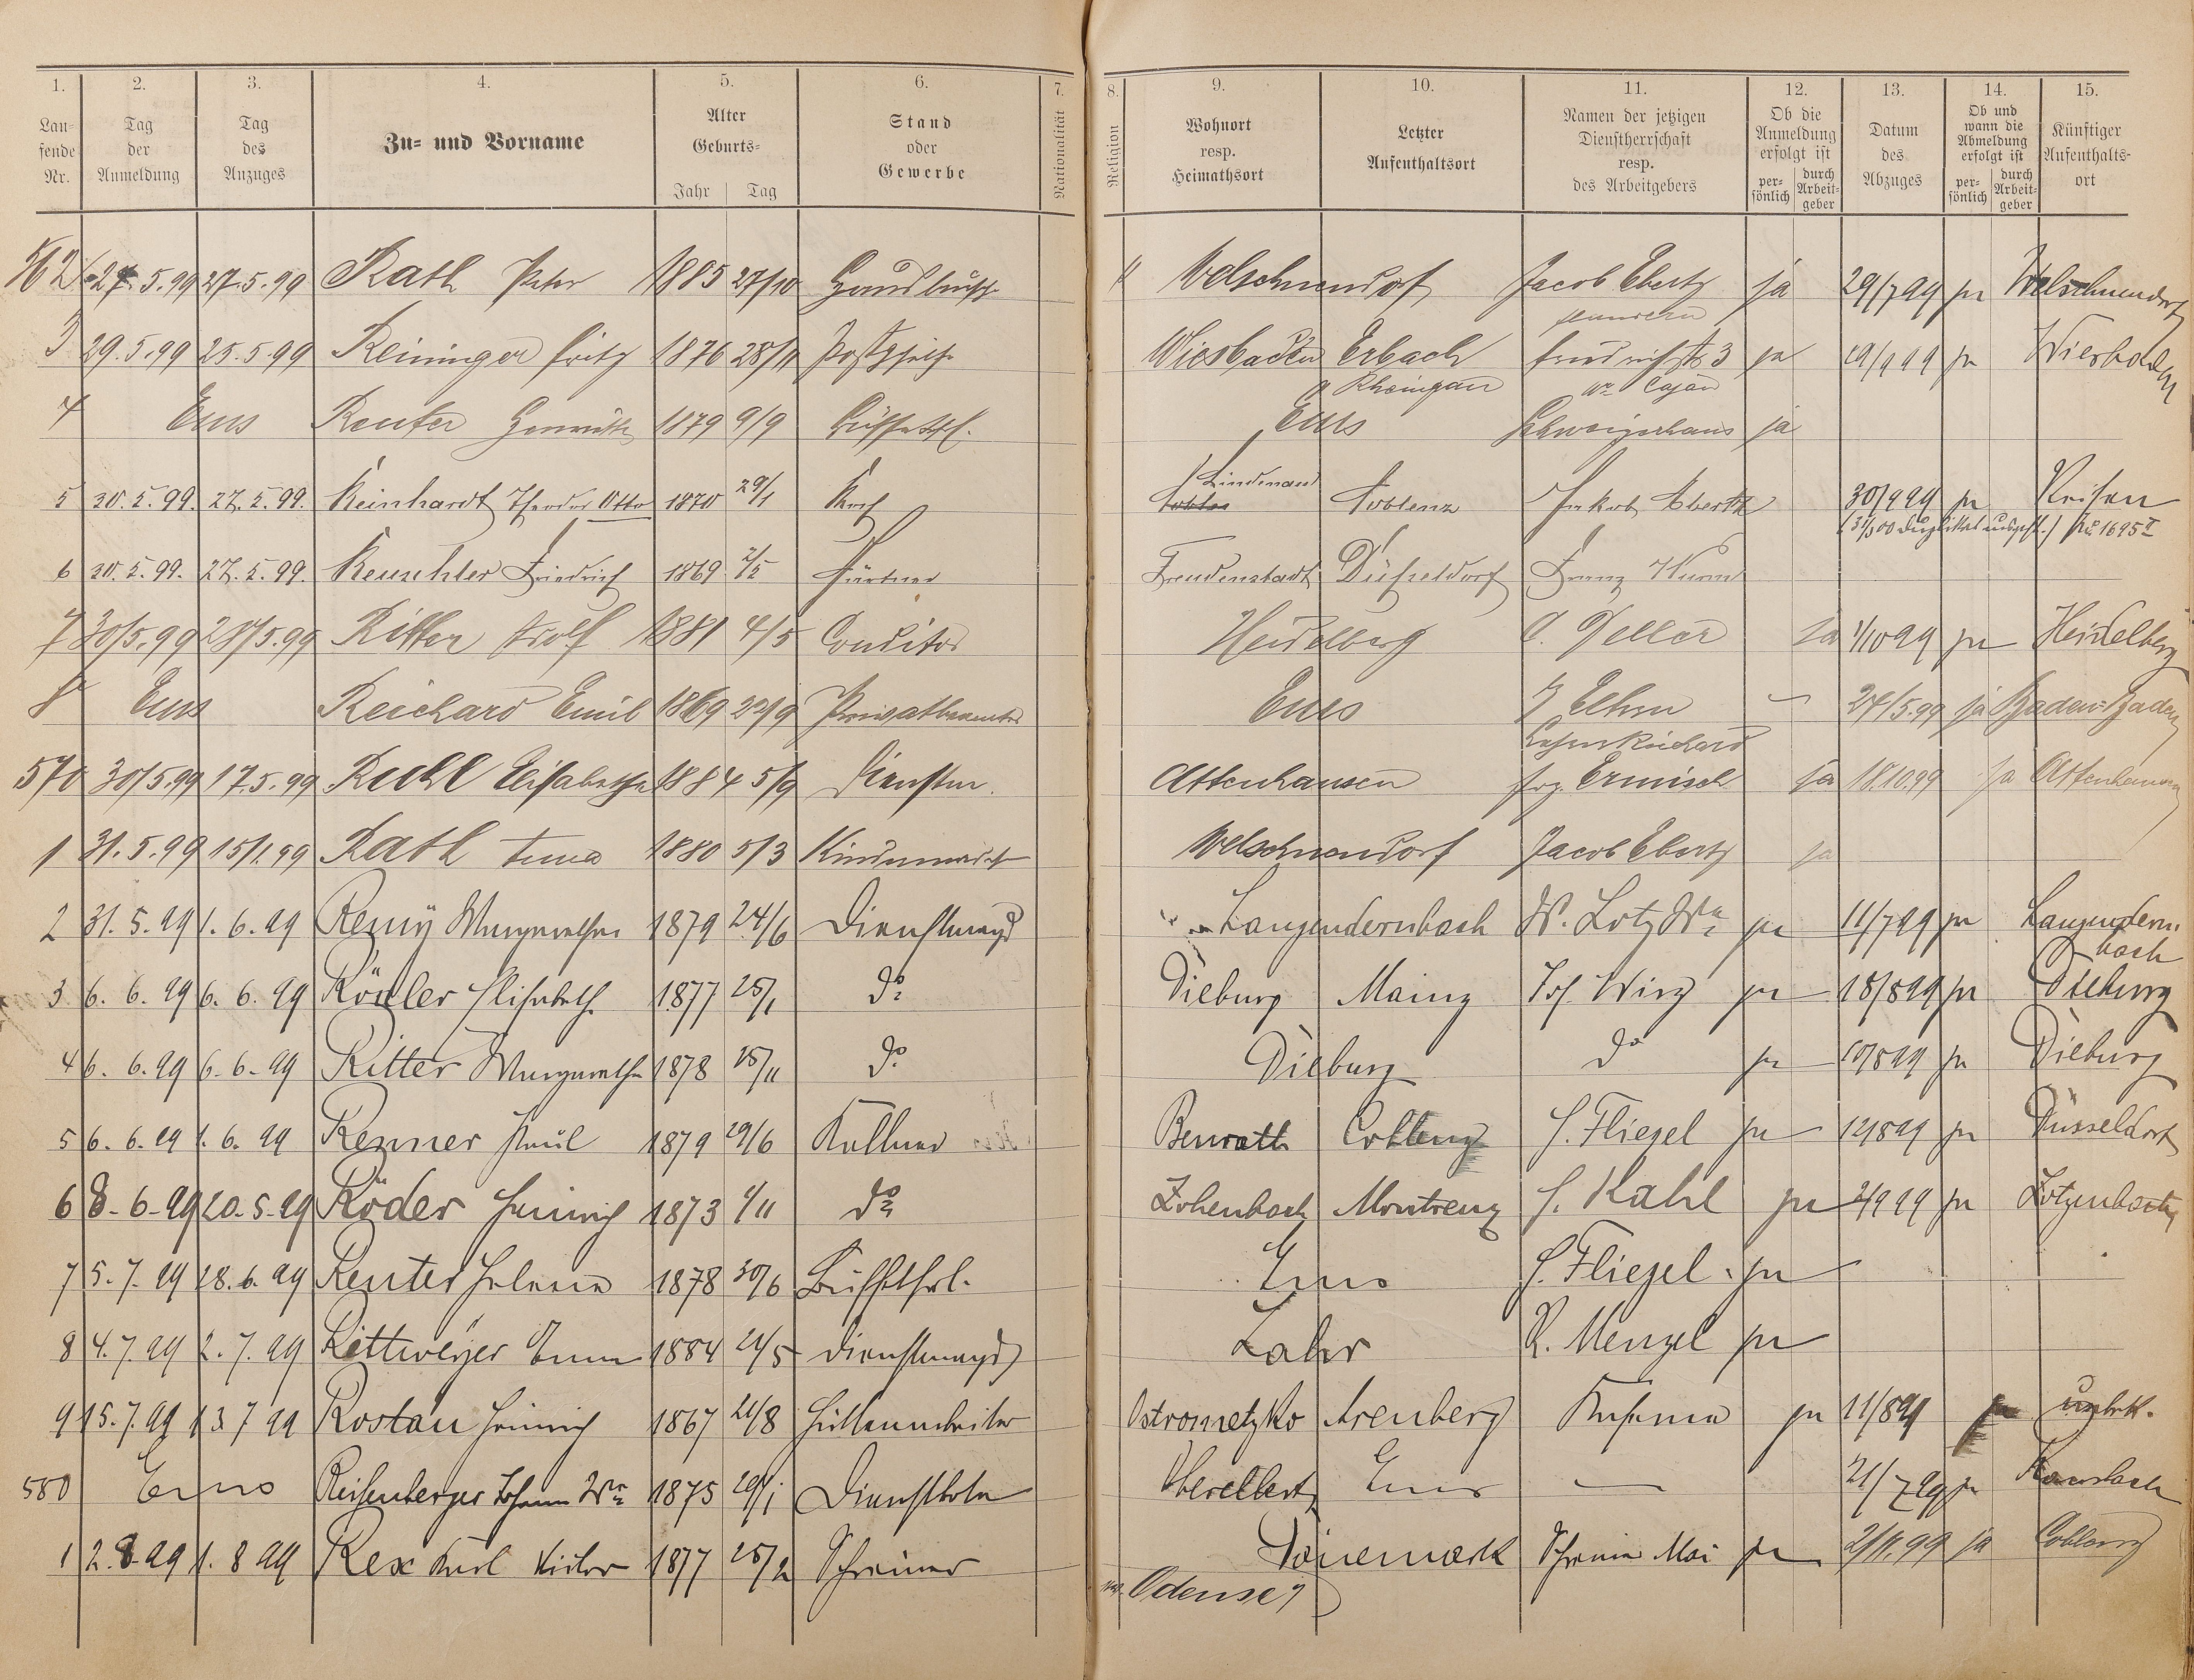 1. 2. 3. 4. 5. 6. 7. 8. 9. 10. 11. 12. 13. 14. 15.
Lau-
fende
Nr.
Tag
der
Anmeldung
Tag
des
Anzuges
Zu- und Vorname
Alter
Geburts-
Jahr Tag
Stand
oder
Gewerbe
Nationalität
Religion
Wohnort
resp.
Heimathsort
Letzter
Aufenthaltsort
Namen der jetzigen
Dienstherrschaft
resp.
des Arbeitgebers
Ob die
Anmeldung
erfolgt ist
per-
sönlich
durch
Arbeit-
geber
Datum
des
Abzuges
Ob und
wann die
Abmeldung
erfolgt ist
per-
sönlich
durch
Arbeit-
geber
Künftiger
Aufenthalts-
ort
562 27.5.99 27.5.99 Rath Peter 1885 27/10 Welschneudorf Jacob Ebertz ja 29/7 99 ja Welschneudorf
3 29.5.99 25.5.99 Reininger Fritz 1876 28/11 Wiesbaden Erbach Friedrichstr 3 ja 19/9 99 ja Wiesbaden
Rheingau
4 Ems Reuter 1879 9/9 Ems Schweizerhaus ja
5 30.5.99. 27.5.99. Reinhardt Theodor Otto 1870 29/1 Koch Coblenz Jakob Ebertz 30/9 99 ja Reisen
6 30.5.99. 27.5.99. Reuschler Friedrich 1869 2/5 Gärtner Freudenstadt Düsseldorf Franz Wurm
7 30/5.99 28/5.99 Ritter Adolf 1881 4/5 Conditor Heidelberg ja 1/10 99 ja Heidelberg
8 Ems Reichard Emil 1869 22/9 Privatbeamter Ems — 24/5.99 ja Baden-Baden
570 30/5.99 17.5.99 Ruhl Elisabethe 1884 5/9 Dienstm. Attenhausen Frz. Ermisch ja 18.10.99 ja Attenhausen
1 31.5.99 15/1.99 Rath Anna 1880 5/3 Kindermädch Welschneudorf Jacob Ebertz ja
2 31.5.99 1.6.99 Remy Margarethe 1879 24/6 Dienstmagd Langendernbach W. Lotz Wwe ja 11/7 99 ja Langendern-
bach
3 6.6.99 6.6.99 Elisabeth 1877 25/1 do Dieburg Mainz Jos. Wirz ja 18/8 99 ja Dieburg
4 6.6.99 6.6.99 Ritter Margarethe 1878 25/11 do Dieburg do ja 10/8 99 ja Dieburg
5 6.6.99 1.6.99 Renner Paul 1879 29/6 Kellner Benrath Coblenz H. Fliegel ja 12/8 99 ja Düsseldorf
6 8.6.99 20.5.99 Röder Heinrich 1873 1/11 do H. Kahl ja 2/9 99 ja
7 5.7.99 28.6.99 Reuter Helene 1878 30/6 Büffetfrl. Ems H. Fliegel ja
8 4.7.99 2.7.99 Rittweyer Emma 1884 21/5 Dienstmagd Lahr R. Menzel ja
9 15.7.99 13 7 99 Rostau Heinrich 1867 21/8 Hüttenarbeiter Ostrometzko Arenberg ja 11/8 99 ja unbek.
580 Ems Reifenberger Johann Wwe 1875 Dienstbote Oberelbert Ems — 21/7 99 ja Ransbach
1 2.8.99 1.8 99 Rex Karl Victor 1877 25/2 Schreiner Dänemark Schreiner Mai ja 2/11.99 ja Coblenz
Odense